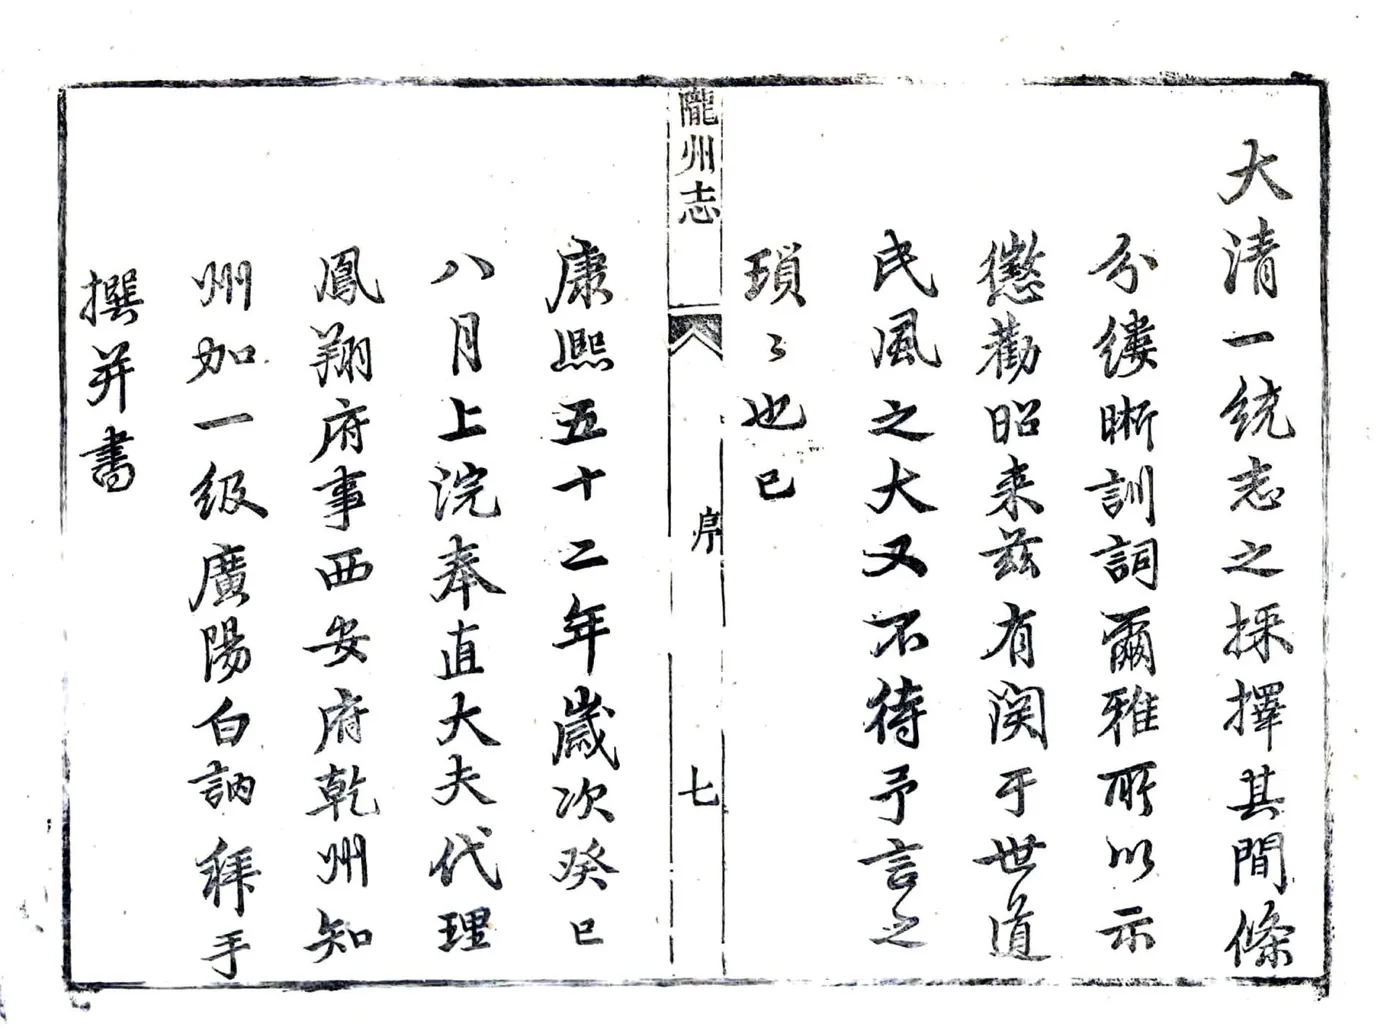 大清一统志之採擇其間條
分縷晰訓詞爾雅所以示
懲勸昭来兹有関于世道
民風之大又不待予言之
瑣〻也已
隴州志
序
七
康熙五十二年歲次癸巳
八月上浣奉直大夫代理
鳳翔府事西安府乾州知
州加一級廣陽白訥拜手
撰并書